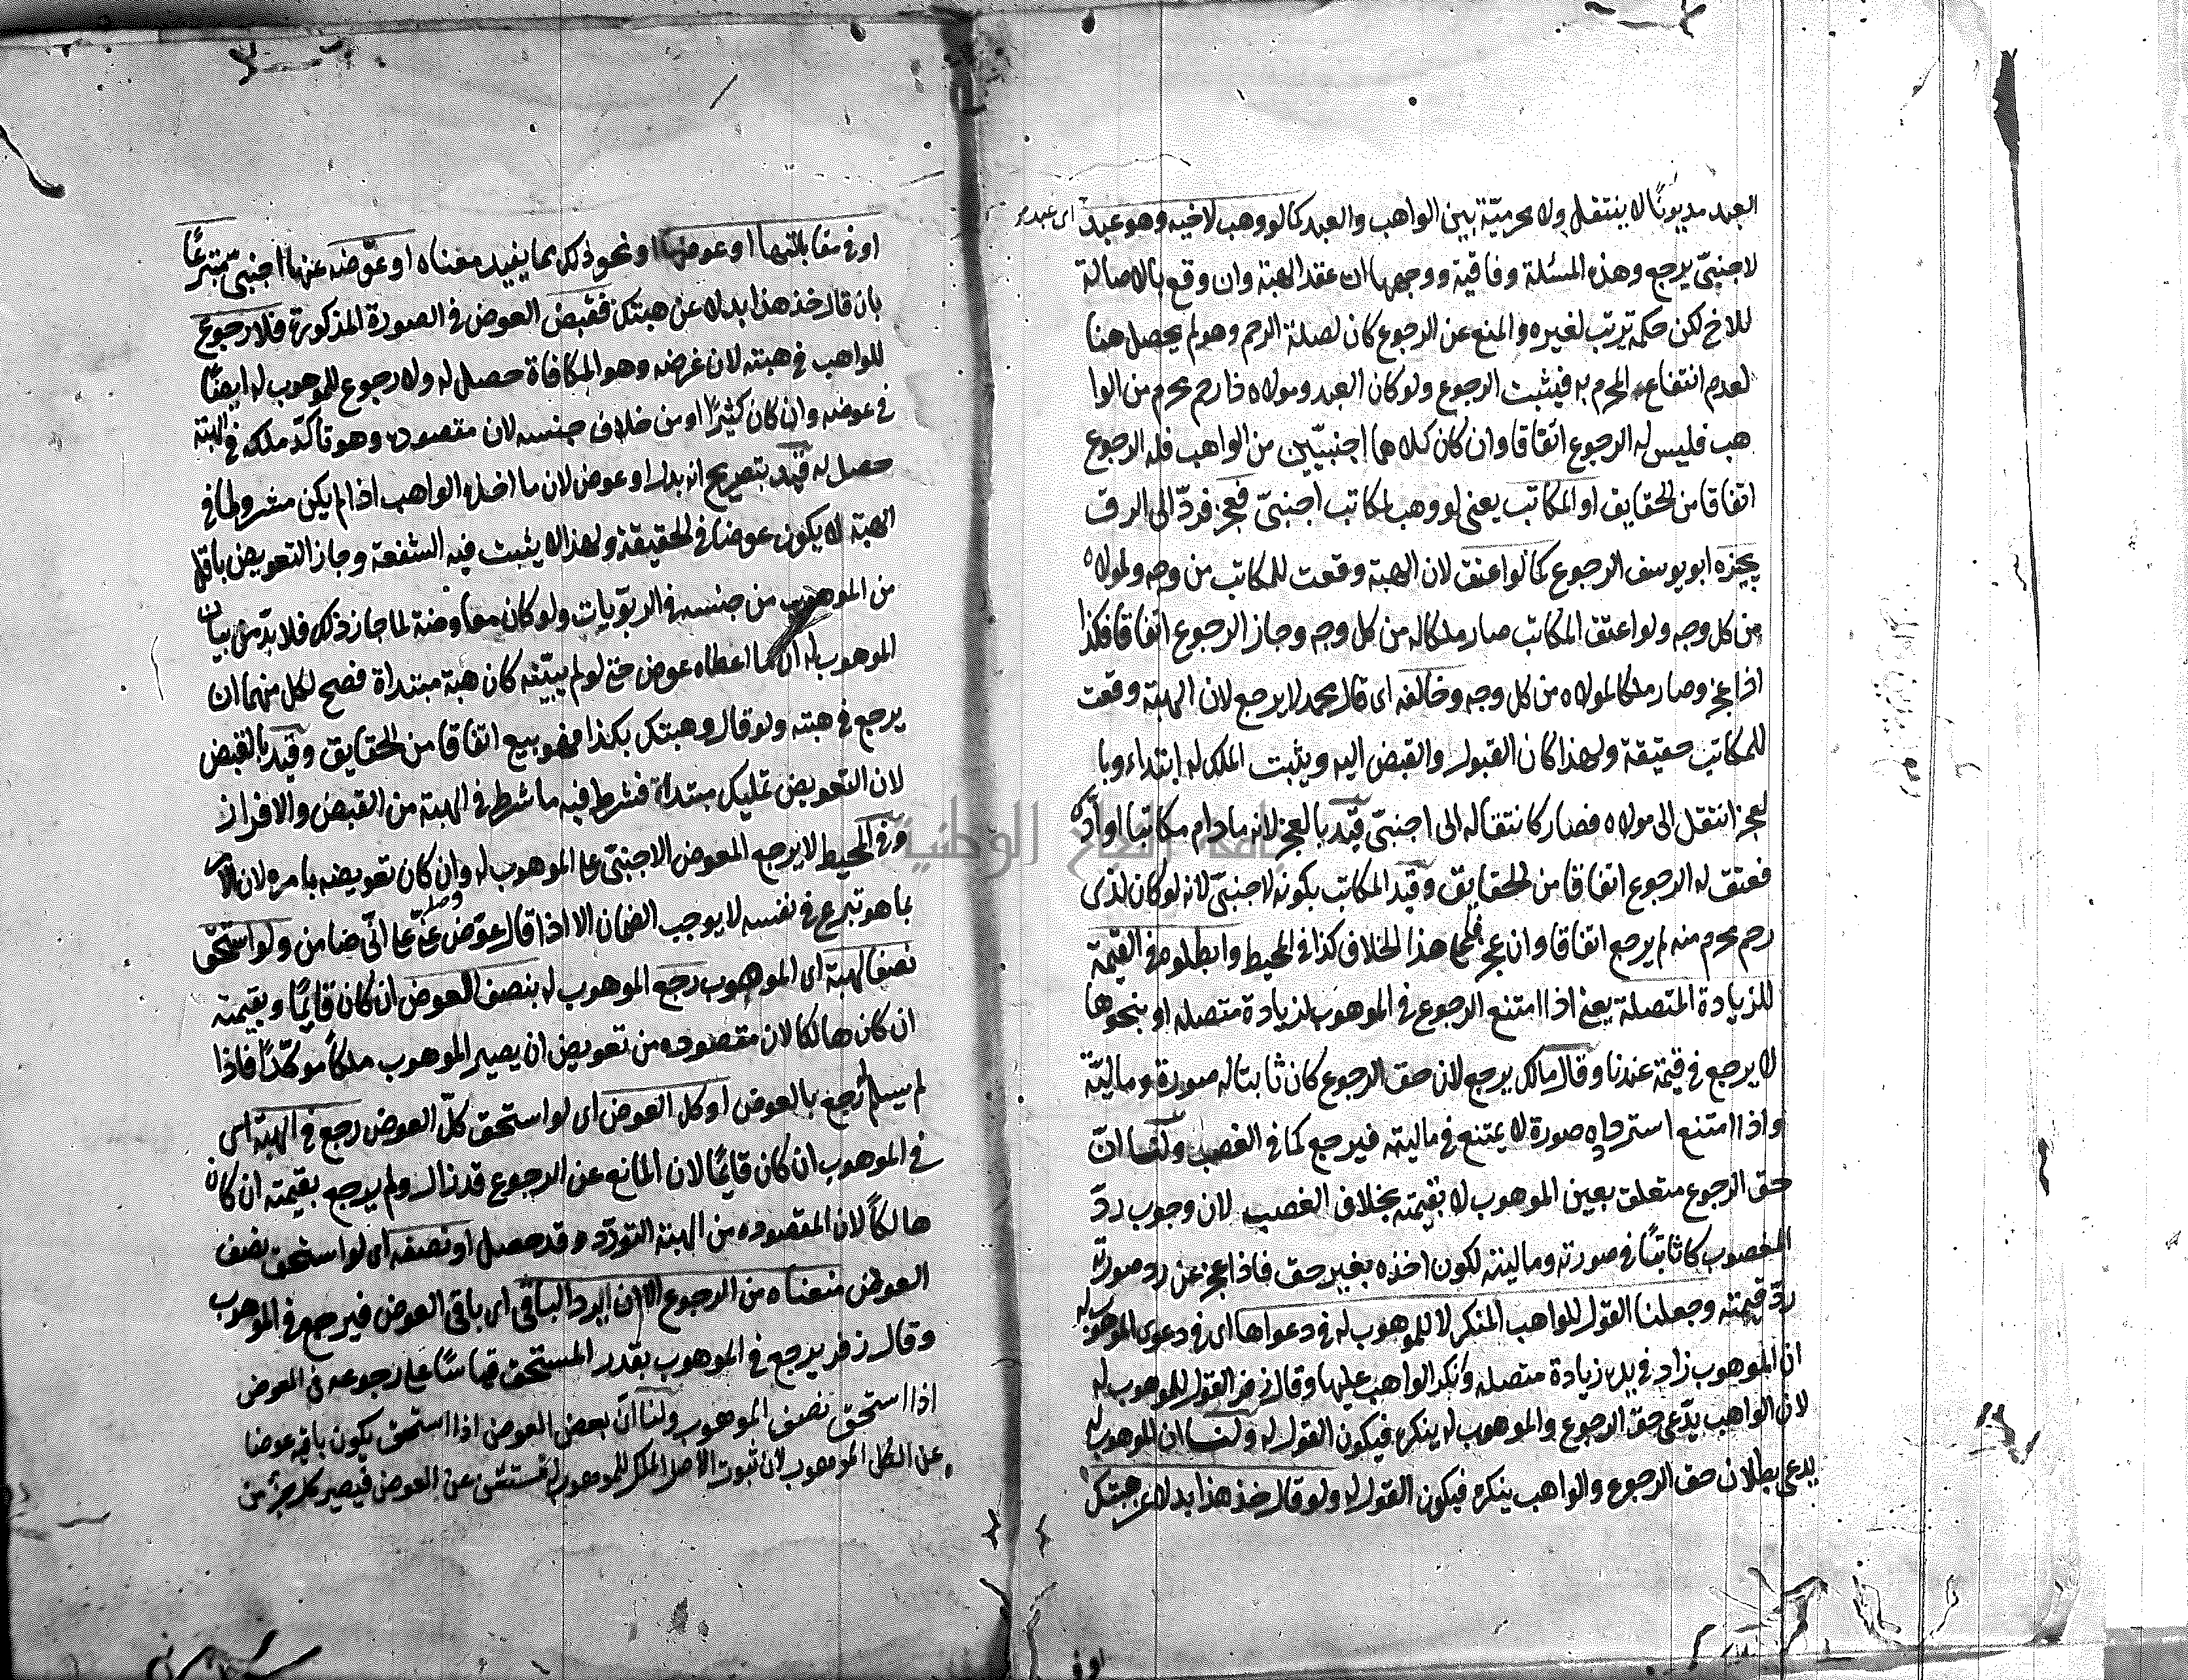 العبد مديونا لا ينتقل ولا محرمية بين الواهب والعبد كما لو وهب لاخيه وهو عبد
اى عبد
لاجنبىّ يرجع وهذه المسئلة وفاقية ووجهها ان عقد الهبة وان وقع بالاصالة
للاخ لكن حكمه ترتب لغيره والمنع عن الرجوع كان لصلة الرحم وهو لم يحصل هنا
لعدم انتفاع المحرم به فيثبت الرجوع ولو كان العبد ومولاه ذا رحم محرم من الوا
هب فليس له الرجوع اتفاقا وان كان كلاهما اجنبيّين من الواهب فله الرجوع
اتفاقا من الحقايق او المكاتب يعنى لو وهب لمكاتب اجنبىّ فعجز فردّ الى الرق
يجيزه ابو يوسف الرجوع كما لو اعتق لان الهبة وقعت للمكاتب من وجه ولمولاه
من كل وجه ولو اعتق المكاتب صار ملكا له من كل وجه وجاز الرجوع اتفاقا فكذا
اذا عجز وصار ملكا لمولاه من كل وجه وخالفه اى قال محمد لا يرجع لان الهبة وقعت
للمكاتب حقيقة ولهذا كان القبول والقبض اليه ويثبت الملك له ابتداء وبا
لعجز انتقل الى مولاه فصار كانتقاله الى اجنبىّ قيّد بالعجز لانه ما دام مكاتبا او ادّى
فعتق له الرجوع اتفاقا من الحقايق وقيّد المكاتب بكونه لاجنبىّ لانه لو كان لذى
رحم محرم منه لم يرجع اتفاقا وان عجز فعلى هذا الخلاف كذا فى المحيط وابطلوه فى القيمة
للزيادة المتصلة يعنى اذا امتنع الرجوع فى الموهوب لزيادة متصله او بنحوها
لا يرجع فى قيمة عندنا وقال مالك يرجع لان حق الرجوع كان ثابتا له صورة وماليّة
واذا امتنع استرداده صورة لا يمتنع فى ماليته فيرجع كما فى الغصب ولنا انّ
حق الرجوع متعلق بعين الموهوب لا بقيمته بخلاف الغصب لان وجوب ردّ
المغصوب كان ثابتًا فى صورته وماليته لكون اخذه بغير حق فاذا عجز عن رد صورته
ردّ قيمته وجعلنا القول للواهب المنكر لا للموهوب له فى دعواها اى فى دعوى الموهوب له
ان الموهوب زاد فى يده زيادة متصله وانكر الواهب عليها وقال زفر القول للموهوب له
لان الواهب يدّعى حق الرجوع والموهوب له ينكره فيكون القول له ولنا ان الموهوب له
يدعى بطلان حق الرجوع والواهب ينكره فيكون القول له ولو قال خذ هذا بدلا عن هبتك
او فى
او فى مقابلتها او عوضها او نحو ذلك بما يفيد معناه او عوّضه عنها اجنبىّ متبرعًا
بان قال خذ هذا بدلا عن هبتك فقبض العوض فى الصورة المذكورة فلا رجوع
للواهب فى هبته لان غرضه وهو المكافاة حصل له ولا رجوع للموهوب له ايضًا
فى عوضه وان كان كثيرًا او من خلاف جنسه لان مقصوده وهو تاكّد ملكه فى الهبة
حصل له قيّد بتصريح انه بدل او عوض لان ما اخذه الواهب اذا لم يكن مشروطا فى
الهبة لا يكون عوضا فى الحقيقة ولهذا لا يثبت فيه الشفعة وجاز التعويض باقل
من الموهوب من جنسه فى الربويات ولو كان معاوضة لما جاز ذلك فلا بدّ من بيان
الموهوب له ان ما اعطاه عوض حتى لو لم يبيّنه كان هبة مبتداة فصح لكل منهما ان
يرجع فى هبته ولو قال وهبتك بكذا فهو بيع اتفاقا من الحقايق وقيد بالقبض
لان التعويض تمليك مبتداة فشرط فيه ما شرط فى الهبة من القبض والافراز
وفى المحيط لا يرجع المعوض الاجنبىّ على الموهوب له وان كان تعويضه بامره لان الامر
بما هو تبرع فى نفسه لا يوجب الضمان الا اذا قال عوّض عنّى على انّى ضامن ولو استحق
نصف الهبة اى الموهوب رجع الموهوب له بنصف العوض ان كان قايمًا وبقيمته
ان كان هالكا لان مقصوده من تعويض ان يصير الموهوب ملكًا موكّدًا فاذا
لم يسلم رجع بالعوض او كل العوض اى لو استحق كلّ العوض رجع فى الهبة اى
فى الموهوب ان كان قايمًا لان المانع عن الرجوع قد زال ولم يرجع بقيمته ان كان
هالكًا لان المقصود من الهبة التودّد وقد حصل او نصفه اى لو استحق نصف
العوض منعناه من الرجوع الا ان يرد الباقى اى باقى العوض فيرجع فى الموهوب
وقال زفر يرجع فى الموهوب بقدر المستحق قياسًا على رجوعه فى العوض
اذا استحق نصف الموهوب ولنا انّ بعض العوض اذا استحق يكون باقيه عوضا
عن الكل الموهوب لان ثبوت الاصل الملك للموهوب له مستغنى عن العوض فيصير كل جزء من